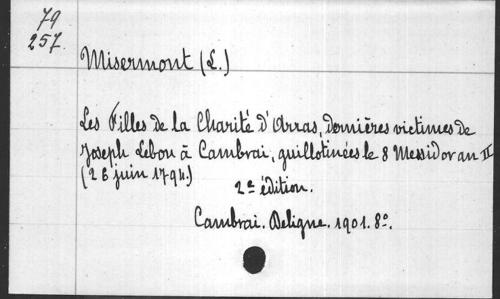 79
257.
Misermont (L.)
Les Filles de la Charité d'Arras, dernières victimes de
Joseph Lebon à Cambrai, guillotinées le 8 Messidor an II
(26 juin 1794.)
2e édition.
Cambrai. Deligne. 1901. 8o.